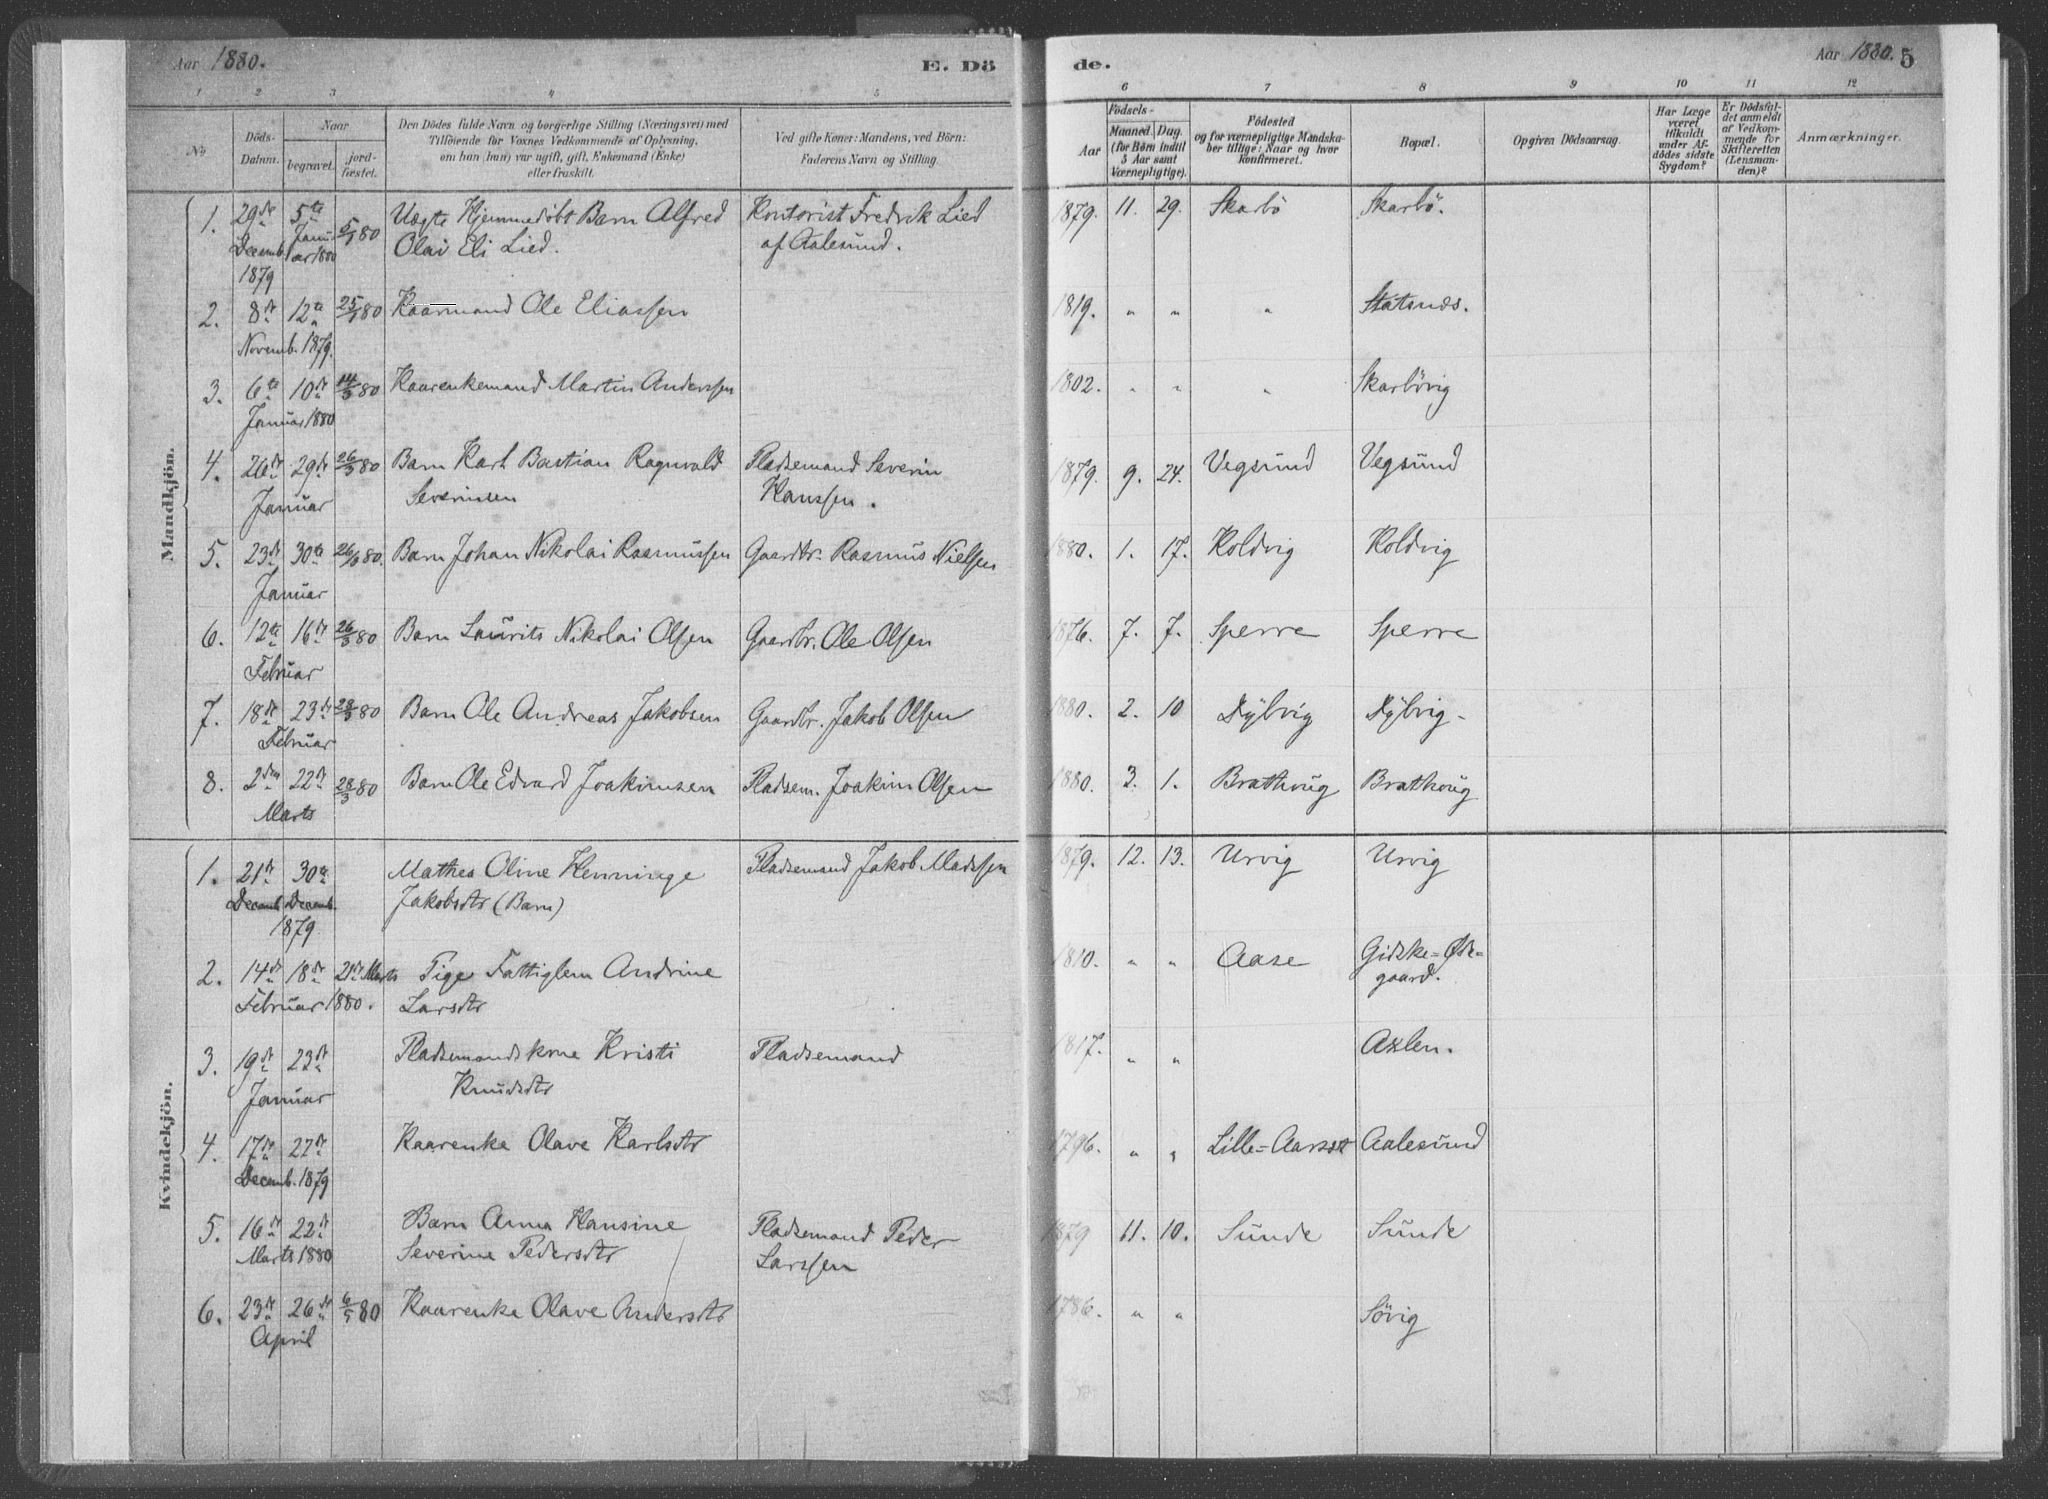 Aar 1880.
E. Dö
de.
Aar 1880. 5
1 2 3 4 5 6 7 8 9 10 11 12
No
Döds-
Datum.
Naar
begravet.
jord-
fæstet.
Den Dödes fulde Navn og borgerlige Stilling (Næringsvei) med
Tilföiende for Voxnes Vedkommende af Oplysning,
om han (hun) var ugift, gift, Enkemand (Enke)
eller fraskilt.
Ved gifte Koner: Mandens, ved Börn:
Faderens Navn og Stilling.
Födsels-
Aar
Maaned. Dag.
(for Börn indtil
5 Aar samt
Værnepligtige).
Födested
og for værnepligtige Mandska-
ber tillige: Naar og hvor
konfirmeret.
Bopæl.
Opgiven Dödsaarsag.
Har Læge
været
tilkaldt
under Af-
dödes sidste
Sygdom?
Er Dödsfal-
det anmeldt
af Vedkom-
mende for
Skifteretten
(Lensman-
den)?
Anmærkninger.
Mandkjön.
1. 29de 5te 5/1 80 Uægte Hjemmedøbt Barn Alfred Kontorist Fredrik Lied 1879. 11. 29. Skarbö Skarbö.
Decemb. Janu- Olai Eli Lied. af Aalesund.
1879 ar 1880
2. 8de 12te 25/1 80 Kaarmand Ole Eliassen 1819. " " " Slatsnes.
Novemb. 1879.
3. 6te 10de 14/3 80 Kaarenkemand Martin Anderssen 1802. " " " Skarbövig
Januar 1880
4. 26de 29de 26/3 80 Barn Karl Bastian Ragnvald Pladsemand Severin 1879. 9. 24. Vegsund Vegsund
Januar Severinsen Hanssen.
5. 23de 30te 26/3 80. Barn Johan Nikolai Rasmussen Gaardbr. Rasmus Nielsen 1880. 1. 17. Koldvig Koldvig
Januar
6. 12te 16de 26/3 80 Barn Laurits Nikolai Olsen Gaardbr. Ole Olsen 1876. 7. 7. Sperre Sperre
Februar
7. 18de 23de 28/3 80 Barn Ole Andreas Jakobsen Gaardbr. Jakob Olsen 1880. 2. 10 Dybvig Dybvig-
Februar
8. 2den 22de 28/3 80 Barn Ole Edvard Joakimsen Pladsem. Joakim Olsen 1880. 3. 1. Brathoug Brathoug
Marts
Kvindekjön.
1. 21de 30te Mathea Oline Henninge Pladsemand Jakob Madssen 1879. 12. 13. Urvig Urvig
Decemb. Decemb. Jakobsdtr (Barn)
1879
2. 14de 18de 21de Marts Pige Fattiglem Andrine 1810. " " Aase Gidske=Öde=
Februar 1880. Larsdtr gaard.
3. 19de 23de Pladsemandskone Kristi Pladsemand 1817. " " Axlen.
Januar Knudsdtr
4. 17de 27de Kaarenke Olave Karlsdtr 1796. " " Lille=Aarset Aalesund
Decemb. 1879
5. 16de 22de Barn Anna Hansine Pladsemand Peder 1879 11. 10. Sunde Sunde
Marts 1880 Severine Pedersdtr Larssen
6. 23de 26de 6/5 80 Kaarenke Olave Andersdtr 1786. " " Sövig
April